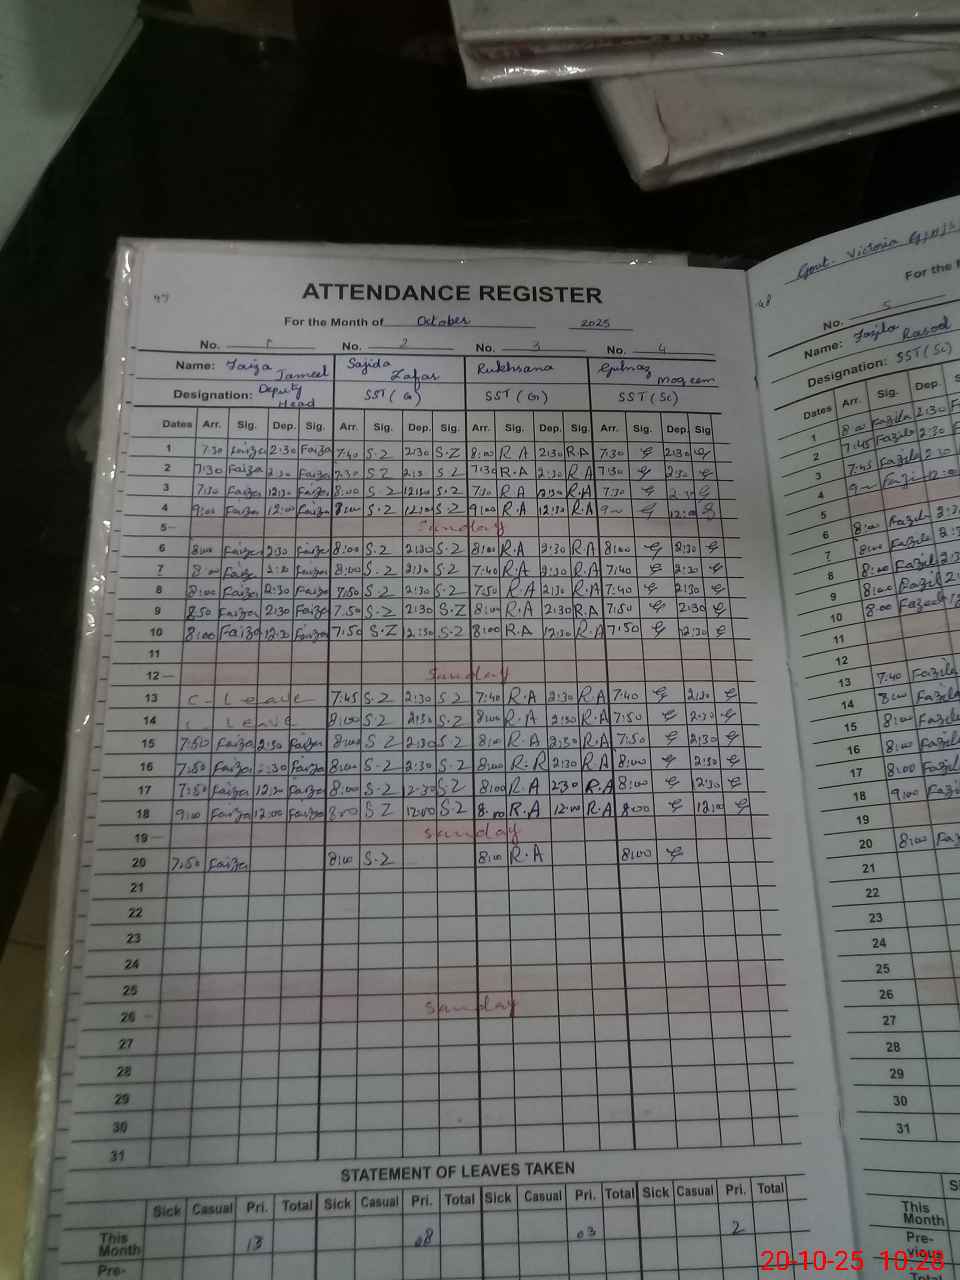 47
ATTENDANCE REGISTER
For the Month of October 2025
No. 1 No. 2 No. 3 No. 4
Name: Faiza Jameel Sajida Zafar Rukhsana Gulnaz
Designation: Deputy Head SST (G) SST (G) SST (Sc)
Dates Arr. Sig. Dep. Sig. Arr. Sig. Dep. Sig. Arr. Sig. Dep. Sig. Arr. Sig. Dep. Sig
1 7:30 Faiza 2:30 Faiza 7:40 S.Z 2:30 S.Z 8:00 R.A 2:30 R.A 7:30 2:30
2 7:30 Faiza 2:30 Faiza 7:30 S.Z S.Z 7:30 R.A 2:30 R.A 7:30 2:30
3 7:30 Faiza 12:30 Faiza 8:00 S.Z 12:30 S.Z 7:30 R.A 12:30 R.A 7:30 2:30
4 9:00 Faiza 12:00 Faiza 8:00 S.Z S.Z 9:00 R.A 12:30 R.A 9
5 Sunday
6 8:00 Faiza 2:30 Faiza 8:00 S.Z 2:30 S.Z 8:00 R.A 2:30 R.A 8:00 2:30
7 8:00 Faiza 2:30 Faiza 8:00 S.Z 2:30 S.Z 7:40 R.A 2:30 R.A 7:40 2:30
8 8:00 Faiza 2:30 Faiza 7:50 S.Z 2:30 S.Z 7:50 R.A 2:30 R.A 7:40 2:30
9 8:50 Faiza 2:30 Faiza 7:50 S.Z 2:30 S.Z 8:00 R.A 2:30 R.A 7:50 2:30
10 8:00 Faiza 12:30 Faiza 7:50 S.Z 12:30 S.Z 8:00 R.A 12:30 R.A 7:50 12:30
11
12 Sunday
13 C- Leave 7:45 S.Z 2:30 S.Z 7:40 R.A 2:30 R.A 7:40 2:30
14 Leave 8:00 S.Z 2:30 S.Z 8:00 R.A 2:30 R.A 7:50 2:30
15 7:50 Faiza 2:30 Faiza 8:00 S.Z 2:30 S.Z 8:00 R.A 2:30 R.A 7:50 2:30
16 7:50 Faiza 2:30 Faiza 8:00 S.Z 2:30 S.Z 8:00 R.R 2:30 R.A 8:00 2:30
17 7:50 Faiza 12:30 Faiza 8:00 S.Z 12:30 S.Z 8:00 R.A 230 R.A 8:00 2:30
18 9:00 Faiza 12:00 Faiza 8:00 S.Z 12:00 S.Z 8:00 R.A 12:00 R.A 8:00
19 Sunday
20 7:50 Faiza 8:00 S.Z 8:00 R.A 8:00
21
22
23
24
25
26 Sunday
27
28
29
30
31
STATEMENT OF LEAVES TAKEN
Sick Casual Pri. Total Sick Casual Pri. Total Sick Casual Pri. Total Sick Casual Pri. Total
This Month 13 08 03 2
Pre-
48
Govt. Victoria
For the
No. 5
Name: Fazila Rasool
Designation: SST (Sc)
Dates Arr. Sig. Dep.
1 8:00 Fazila 2:30
2 7:45 Fazila 2:30
3 7:45 Fazila 2:30
4 9
5
6 8:00 Fazila 2:30
7 8:00 Fazila 2:3
8 8:00 Fazila 2:3
9 8:00 Fazila 2:
10 8:00 Fazila
11
12
13 7:40 Fazila
14 8:00 Fazila
15 8:00 Fazila
16 8:00 Fazila
17 8:00 Fazila
18 9:00
19
20 8:00
21
22
23
24
25
26
27
28
29
30
31
This Month
Pre-vious
Total
20-10-25 10:28